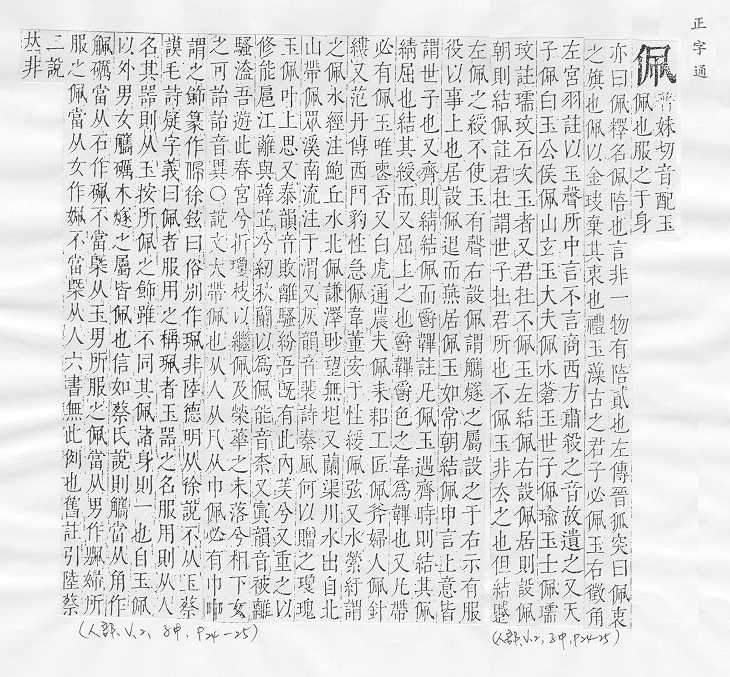 正字通
佩
普妹切音配玉
佩也服之于身
亦曰佩釋名佩陪也言非一物有陪貳也左傳晉狐突曰佩衷
之旗也佩以金玦棄其衷也禮玉藻古之君子必佩玉右徵角
左宮羽註以玉聲所中言不言商西方肅殺之音故遺之又天
子佩白玉公侯佩山玄玉大夫佩水蒼玉世子佩瑜玉士佩瓀
玟註瓀玟石次玉者又君在不佩玉左結佩右設佩居則設佩
朝則結佩註君在謂世子在君所也不佩玉非去之也但結蹙
左佩之綬不使玉有聲右設佩謂觿燧之屬設之于右示有服
役以事上也居設佩退而燕居佩玉如常朝結佩申言上意皆
謂世子也又齊則綪結佩而爵韠註凡佩玉遇齊時則結其佩
綪屈也結其綬而又屈上之也爵韠爵色之韋爲韠也又凡帶
必有佩玉唯喪否又白虎通農夫佩耒耜工匠佩斧婦人佩針
縷又范丹傳西門豹性急佩韋董安于性緩佩弦又水縈紆謂
之佩水經注鮑丘水北佩謙澤眇望無垠又蘭渠川水出自北
山帶佩眾溪南流注于渭又灰韻音裴詩秦風何以贈之瓊瑰
玉佩叶上思又泰韻音敗離騷紛吾旣有此內美兮又重之以
修能扈江離與薜芷兮紉秋蘭以爲佩能音柰又寘韻音被離
騷溘吾遊此春宮兮折瓊枝以繼佩及榮華之未落兮相下女
之可詒詒音異○說文大帶佩也从人从凡从巾佩必有巾巾
謂之飾篆作徐鉉曰俗別作珮非陸德明从徐說不从玉蔡
謨毛詩疑字義曰佩者服用之稱珮者玉器之名服用則从人
名其器則从玉按所佩之飾雖不同其佩諸身則一也自玉佩
以外男女觿礪木燧之屬皆佩也信如蔡氏說則觿當从角作
礪當从石作不當槩从玉男所服之佩當从男作婦所
服之佩當从女作不當槩从人六書無此例也舊註引陸蔡
二說
𠀤非
(人部, V.2, 子中, P24-25)
(人部, V.2, 子中, P24-25)